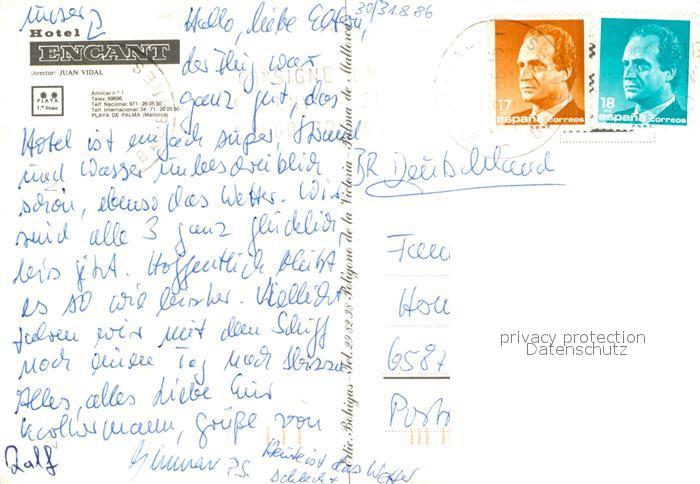 30/31.8.86
Hallo, liebe Eltern,
der Flug war
ganz gut, das
unser
Hotel
ENCANT
Director: JUAN VIDAL
PLAYA
1.ª línea
Amilcar n.º 1
Telex: 69696
Telf. Nacional: 971 - 26 05 50
Telf. Internacional: 34 - 71 - 26 05 50
PLAYA DE PALMA (Mallorca)
Hotel ist einfach super, Strand
und Wasser unbeschreiblich
schön, ebenso das Wetter. Wir
sind alle 3 ganz glücklich
bis jetzt. Hoffentlich bleibt
es so wie bisher. Vielleicht
fahren wir mit dem Schiff
noch einen Tag nach
Alles, alles Liebe Eure
Grüße von
Ralf
P.S. Heute ist das Wetter
schlecht
Polígono de la Victoria - Palma de Mallorca
17
españa correos
18
españa correos
BR Deutschland
Fam
6587
privacy protection
Datenschutz